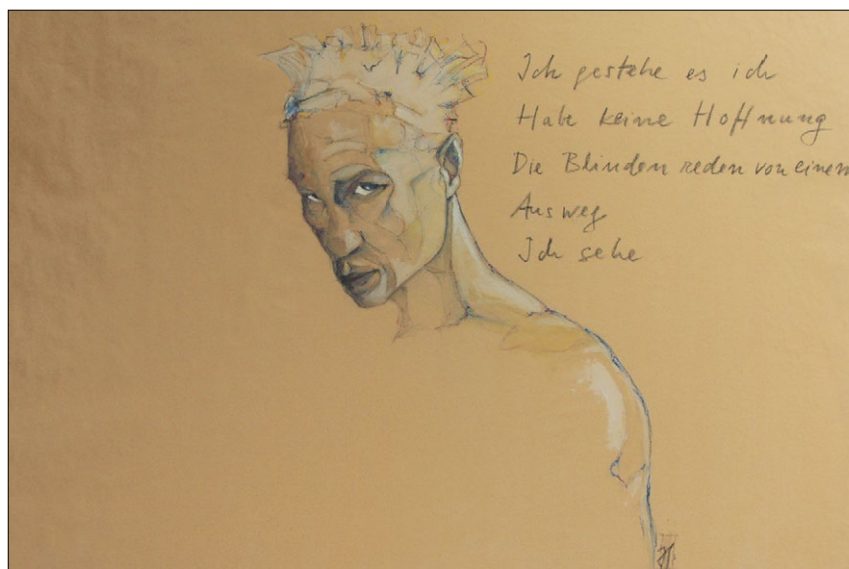 Ich gestehe es ich
Habe keine Hoffnung
Die Blinden reden von einem
Ausweg
Ich sehe